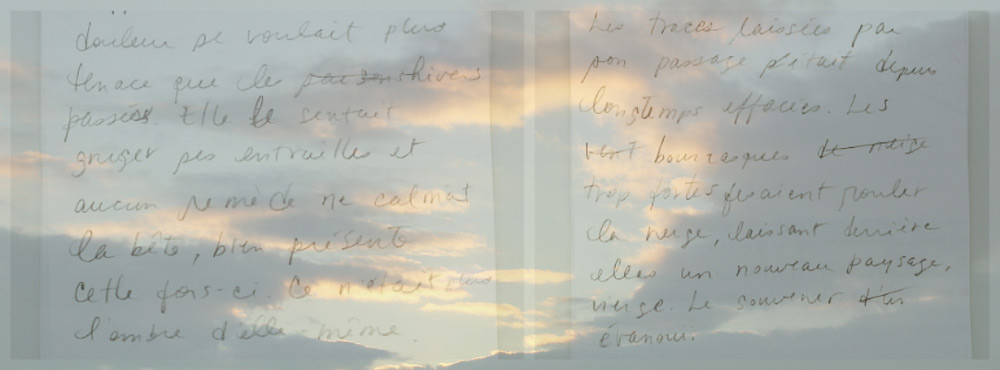 douleur se voulait plus
tenace que les hivers
passés. Elle le sentait
gruger ses entrailles et
aucun remède ne calmait
la bête, bien présente
cette fois-ci. Ce n'était plus
l'ombre d'elle-même.
Les traces laissées par
son passage s'était depuis
longtemps effacées. Les
vent bourrasques de neige
trop fortes feraient rouler
la neige, laissant derrière
elles un nouveau paysage,
vierge. Le souvenir
évanoui.